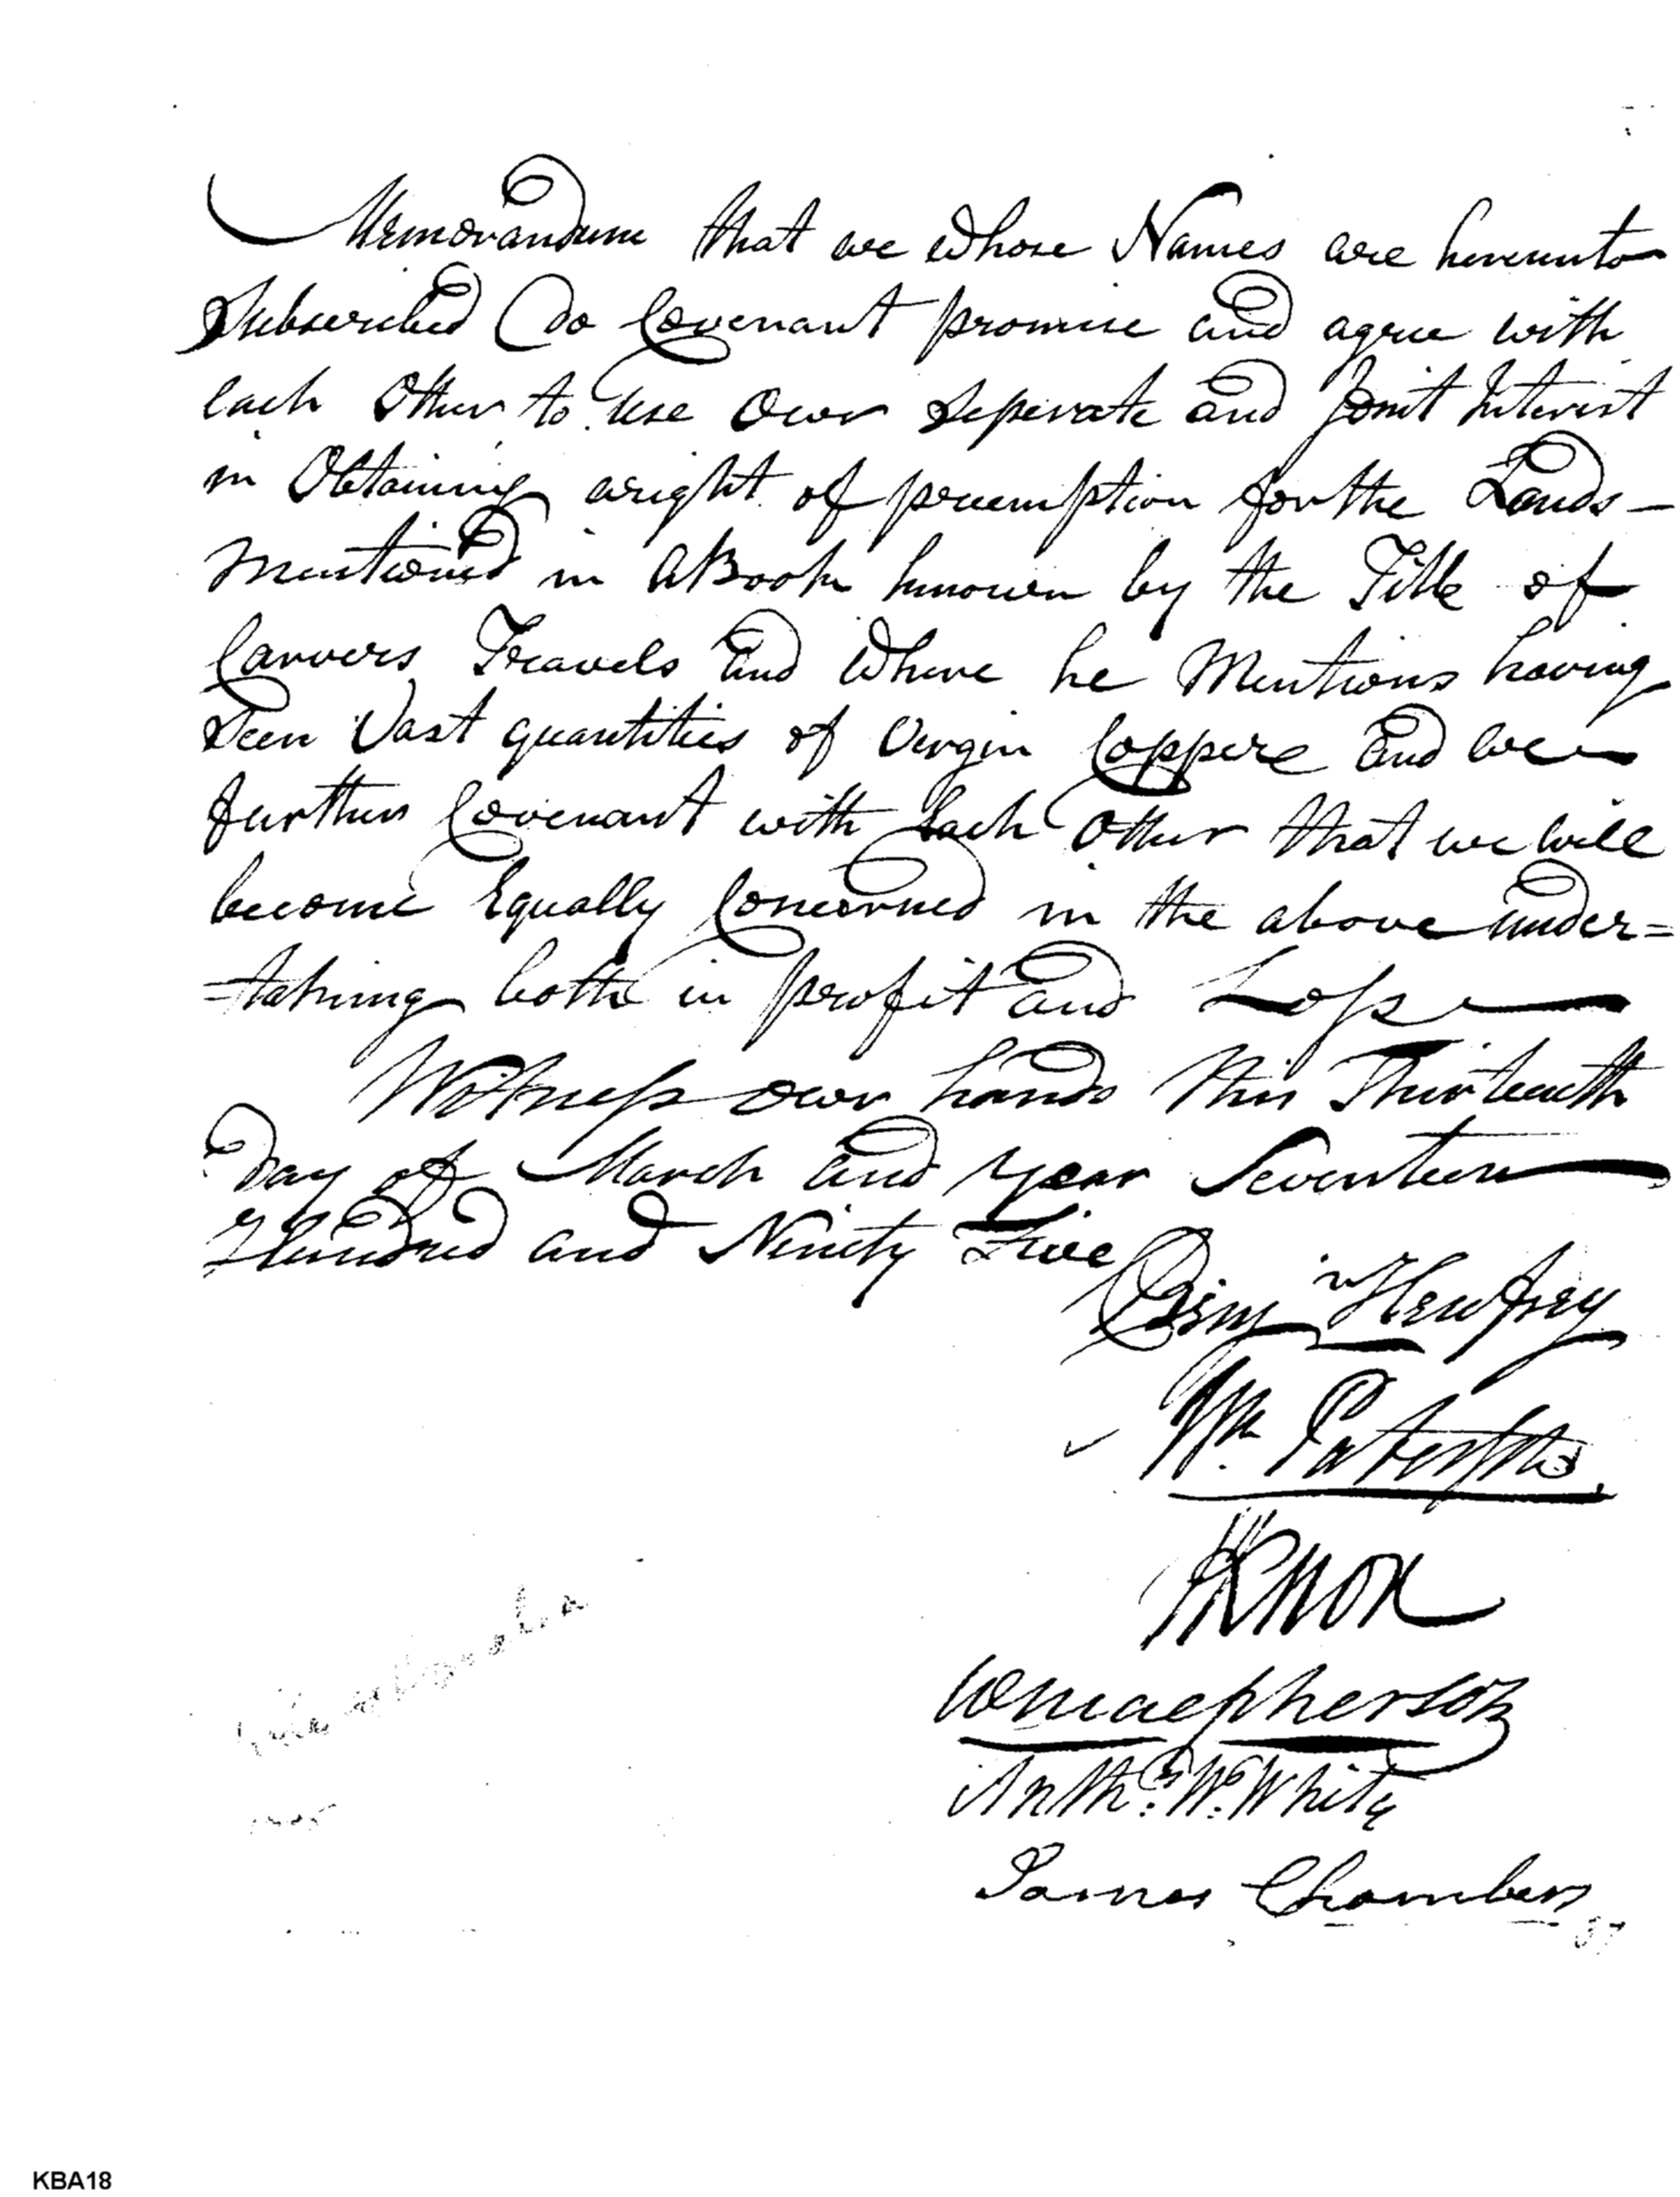 Memorandum that we whose Names are hereunto
Subscribed Do Covenant promise and agree with
each Other to use Our Seperate and Joint Interest
in Obtaining aright of preemption forthe Lands –
Mentioned in aBook known by the Title of
Carvers Travels and Where he Mentions having
Seen Vast quantities of Virgin Coppere and we
further Covenant with Each Other that we will
become Equally Concerned in the above under=
=taking both in profit and Loss
Witness our hands this Thirteenth
Day of March and year Seventeen
Hundred and Ninety Five
Benjn Hewfrey
Wm
HKnox
Wmacpherson
Anthy. W. White
James Chambers
37
KBA18